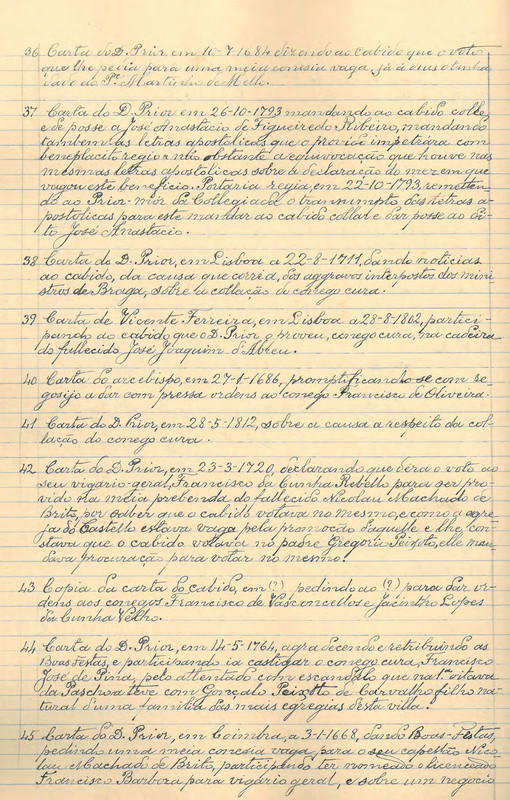 36 Carta do D. Prior em 10-7-1684 dizendo ao cabido que o voto
que lhe pedia para uma meia conesia vaga, já o deus o tinha
dado ao Pe. Martinho de Mello.
37 Carta do D. Prior em 26-10-1793 mandando ao cabido colle
e dê posse a José Anastacio de Figueiredo Ribeiro, mandando
tambem as letras apostolicas que o provião impetrára com
beneplacito regio e não obstante a equivocação que houve nas
mesmas letras apostolicas sobre a declaração do mez em que
vagou este beneficio. Portaria regia, em 22-10-1793, remetten-
do ao Prior-mór da Collegiada o transumpto das letras a-
postolicas para este mandar ao cabido collar e dar posse ao di-
to José Anastacio.
38 Carta do D. Prior, em Lisboa a 22-8-1711, dando noticias
ao cabido, da causa que corria, dos aggravos interpostos dos mini-
stros de Braga, sobre a collação do conego cura.
39 Carta de Vicente Ferreira, em Lisboa a 28-8-1802, partici-
pando ao cabido que o D. Prior o proveu, conego cura, na cadeira
do fallecido José Joaquim d'Abreu.
40 Carta do arcebispo, em 27-1-1686, promptificando-se com re-
gosijo a dar com pressa ordens ao conego Francisco de Oliveira.
41 Carta do D. Prior, em 28-5-1812, sobre a causa a respeito da col-
lação do conego cura.
42 Carta do D. Prior, em 23-3-1720, declarando que dera o voto ao
seu vigario-geral, Francisco da Cunha Rebello para ser pro-
vido na meia prebenda do fallecido Nicolau Machado de
Brito, por saber que o cabido votava no mesmo, e como a egre-
ja do Castello estava vaga pela promoção daquelle e lhe con-
stava que o cabido votava no padre Gregorio Peixoto, elle man-
dava procuração para votar no mesmo.
43 Copia da carta do cabido, em (?) pedindo ao (?) para dar or-
dens aos conegos Francisco de Vasconcellos e Jacintho Lopes
da Cunha Velho.
44 Carta do D. Prior, em 14-5-1764, agradecendo e retribuindo as
Boas Festas, e participando ia castigar o conego cura, Francisco
José de Pina, pelo attentado com escandalo que na 1ª oitava
da Paschoa teve com Gonçalo Peixoto de Carvalho filho na-
tural d'uma familia das mais egregias desta villa.
45 Carta do D. Prior, em Coimbra, a 3-1-1668, dando Boas-Festas,
pedindo uma meia conesia vaga, para o seu capellão Nico-
lau Machado de Brito, participando ter nomeado o licenceado
Francisco Barbora para vigário geral, e sobre um negocio